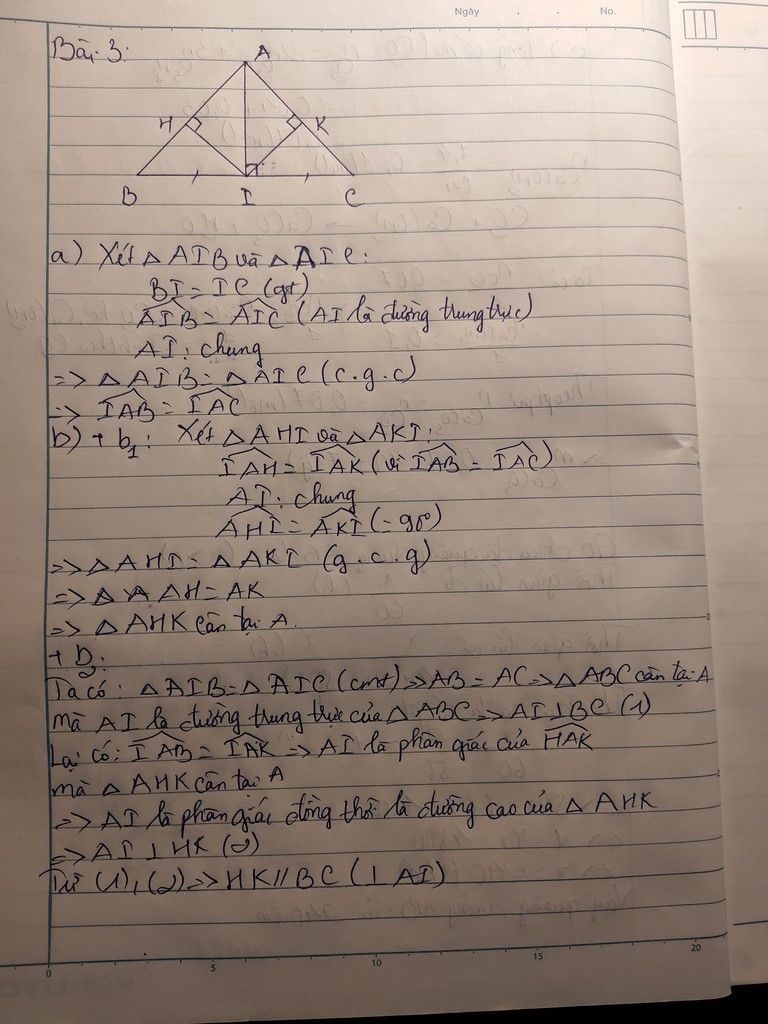 Ngày . . No.
Bài 3:
A
H K
B I C
a) Xét △ AIB và △ AIC:
BI = IC (gt)
\widehat{AIB} = \widehat{AIC} (AI là đường trung trực)
AI: chung
=> △ AIB = △ AIC (c.g.c)
=> \widehat{IAB} = \widehat{IAC}
b) + b₁: Xét △ AHI và △ AKI:
\widehat{IAH} = \widehat{IAK} (vì \widehat{IAB} = \widehat{IAC})
AI: chung
\widehat{AHI} = \widehat{AKI} (= 90°)
=> △ AHI = △ AKI (g.c.g)
=> AH = AK
=> △ AHK cân tại A.
+ b₂:
Ta có: △ AIB = △ AIC (cmt) => AB = AC => △ ABC cân tại A
mà AI là đường trung trực của △ ABC => AI ⊥ BC (1)
Lại có: \widehat{IAB} = \widehat{IAK} => AI là phân giác của \widehat{HAK}
mà △ AHK cân tại A
=> AI là phân giác đồng thời là đường cao của △ AHK
=> AI ⊥ HK (2)
Từ (1), (2) => HK // BC (⊥ AI)
0 5 10 15 20